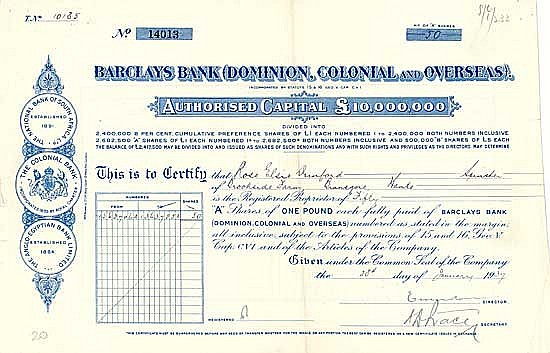 T. No 10135
No 14013
No OF "A" SHARES
50
BARCLAYS BANK (DOMINION, COLONIAL AND OVERSEAS).
INCORPORATED BY STATUTE 15 & 16 GEO. V. CAP. CVI
AUTHORISED CAPITAL £10,000,000
DIVIDED INTO
2,400,000 8 PER CENT. CUMULATIVE PREFERENCE SHARES OF £1 EACH NUMBERED 1 TO 2,400,000 BOTH NUMBERS INCLUSIVE
2,682,500 "A" SHARES OF £1 EACH NUMBERED 1 TO 2,682,500 BOTH NUMBERS INCLUSIVE AND 500,000 "B" SHARES OF £5 EACH
THE BALANCE OF £2,417,500 MAY BE DIVIDED INTO AND ISSUED AS SHARES OF SUCH DENOMINATIONS AND WITH SUCH RIGHTS AND PRIVILEGES AS THE DIRECTORS MAY DETERMINE
THE NATIONAL BANK OF SOUTH AFRICA LTD
ESTABLISHED
1891
THE COLONIAL BANK
THE ANGLO-EGYPTIAN BANK LIMITED
ESTABLISHED
1864
This is to Certify that Rose Ellen Spinster
of Brookside Farm Hants
is the Registered Proprietor of Fifty
"A" Shares of ONE POUND each fully paid of BARCLAYS BANK
(DOMINION, COLONIAL AND OVERSEAS) numbered as stated in the margin,
all inclusive, subject to the provisions of 15 and 16, Geo. V.
Cap. CVI and of the Articles of the Company.
Given under the Common Seal of the Company
the 28th day of January 1937
NUMBERS
SHARES
FROM
TO
50
DIRECTOR
REGISTERED
SECRETARY
20
THIS CERTIFICATE MUST BE SURRENDERED BEFORE ANY DEED OF TRANSFER WHETHER FOR THE WHOLE OR ANY PORTION THEREOF CAN BE REGISTERED OR A NEW CERTIFICATE ISSUED IN EXCHANGE